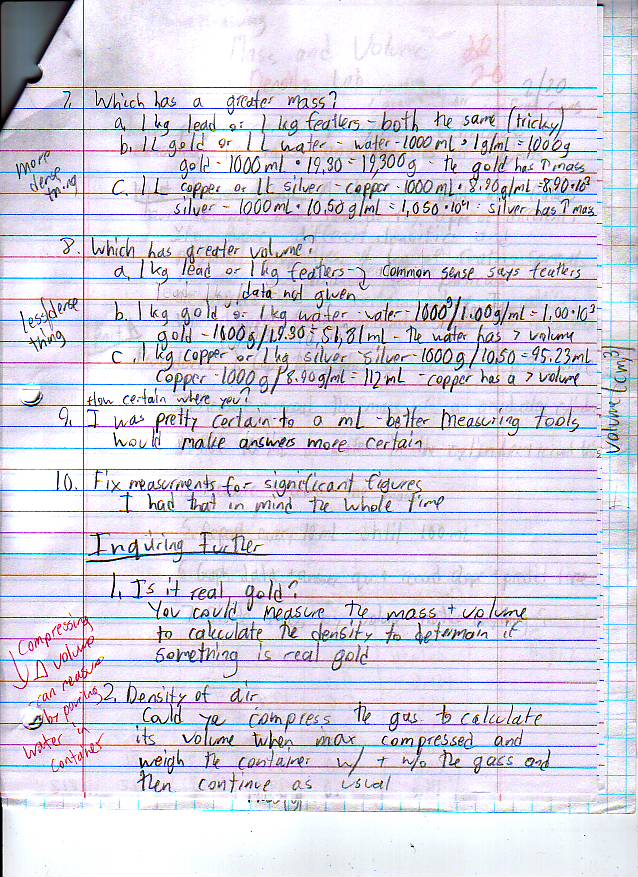 Mass and Volume
7. Which has a greater mass?
a, 1 kg lead or 1 kg featlers - both the same (tricky)
b. 1L gold or 1L water - water - 1000 mL • 1g/mL = 1000g
gold - 1000 mL • 19,30 = 19,300g - the gold has ↑ mass
More dense thing
C. 1L copper or 1L silver - copper - 1000 mL • 8.90g/mL = 8.90•10³
silver - 1000mL • 10,50 g/mL = 1,050 •10⁴ - silver has ↑ mass
8. Which has greater volume?
a, 1 kg lead or 1 kg featlers - common sense says featlers
data not given
b. 1 kg gold or 1 kg water - water - 1000g/1.00g/ml = 1.00•10³
gold - 1000g/19.30 = 51,81ml - the water has > volume
Less dense thing
c. 1 kg copper or 1 kg silver - silver - 1000g/10.50 = 95.23mL
Copper - 1000g/8.90g/mL = 112 mL - copper has a > volume
How certain where you?
9. I was pretty certain - to a mL - better measuring tools
would make answers more certain
10. Fix measurments for significant figures
I had that in mind the whole time
Inquiring Further
1. Is it real gold?
You could measure the mass + volume
to calculate the density to determain if
something is real gold
Compressing
Δ volume
can measure
by pouring
water in
container
2. Density of air
Could you compress the gas to calculate
its volume when max compressed and
weigh the container w/ + w/o the gass and
then continue as usual
Volume (cm³)